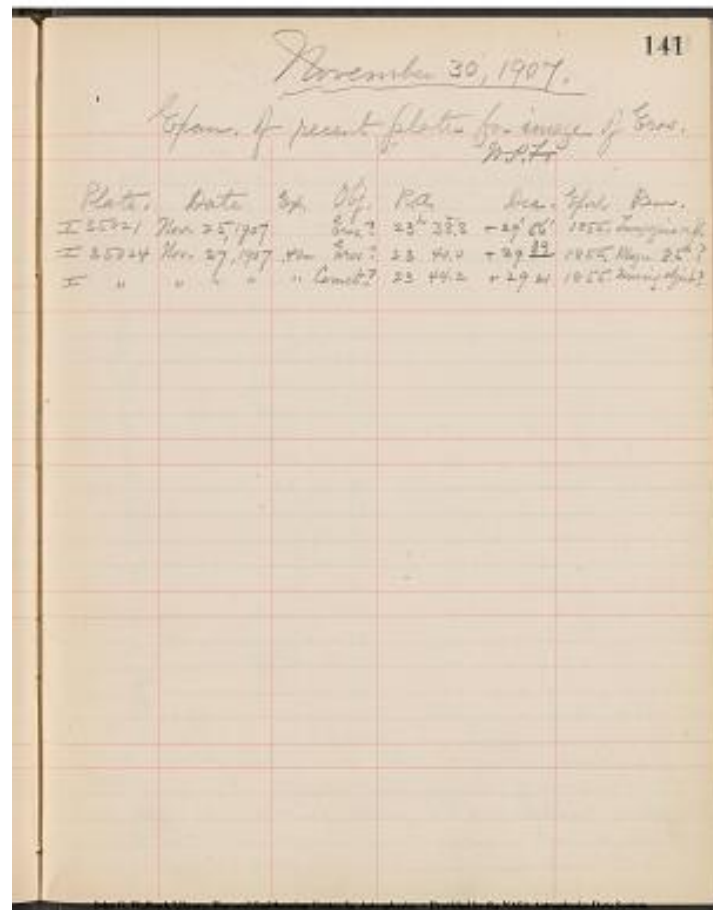 141
November 30, 1907.
Exam. of recent plates for image of Eros.
Plate. Date Ex. Obj. R.A. Dec. Epoch Rem.
I 35021 Nov. 25, 1907 Eros? 23h 38.8 + 29° 1855
I 35024 Nov. 27, 1907 40m Eros? 23 40.0 + 29 1855 Magn.
I " " " " " Comet? 23 44.2 + 29 21 1855 Moving object?